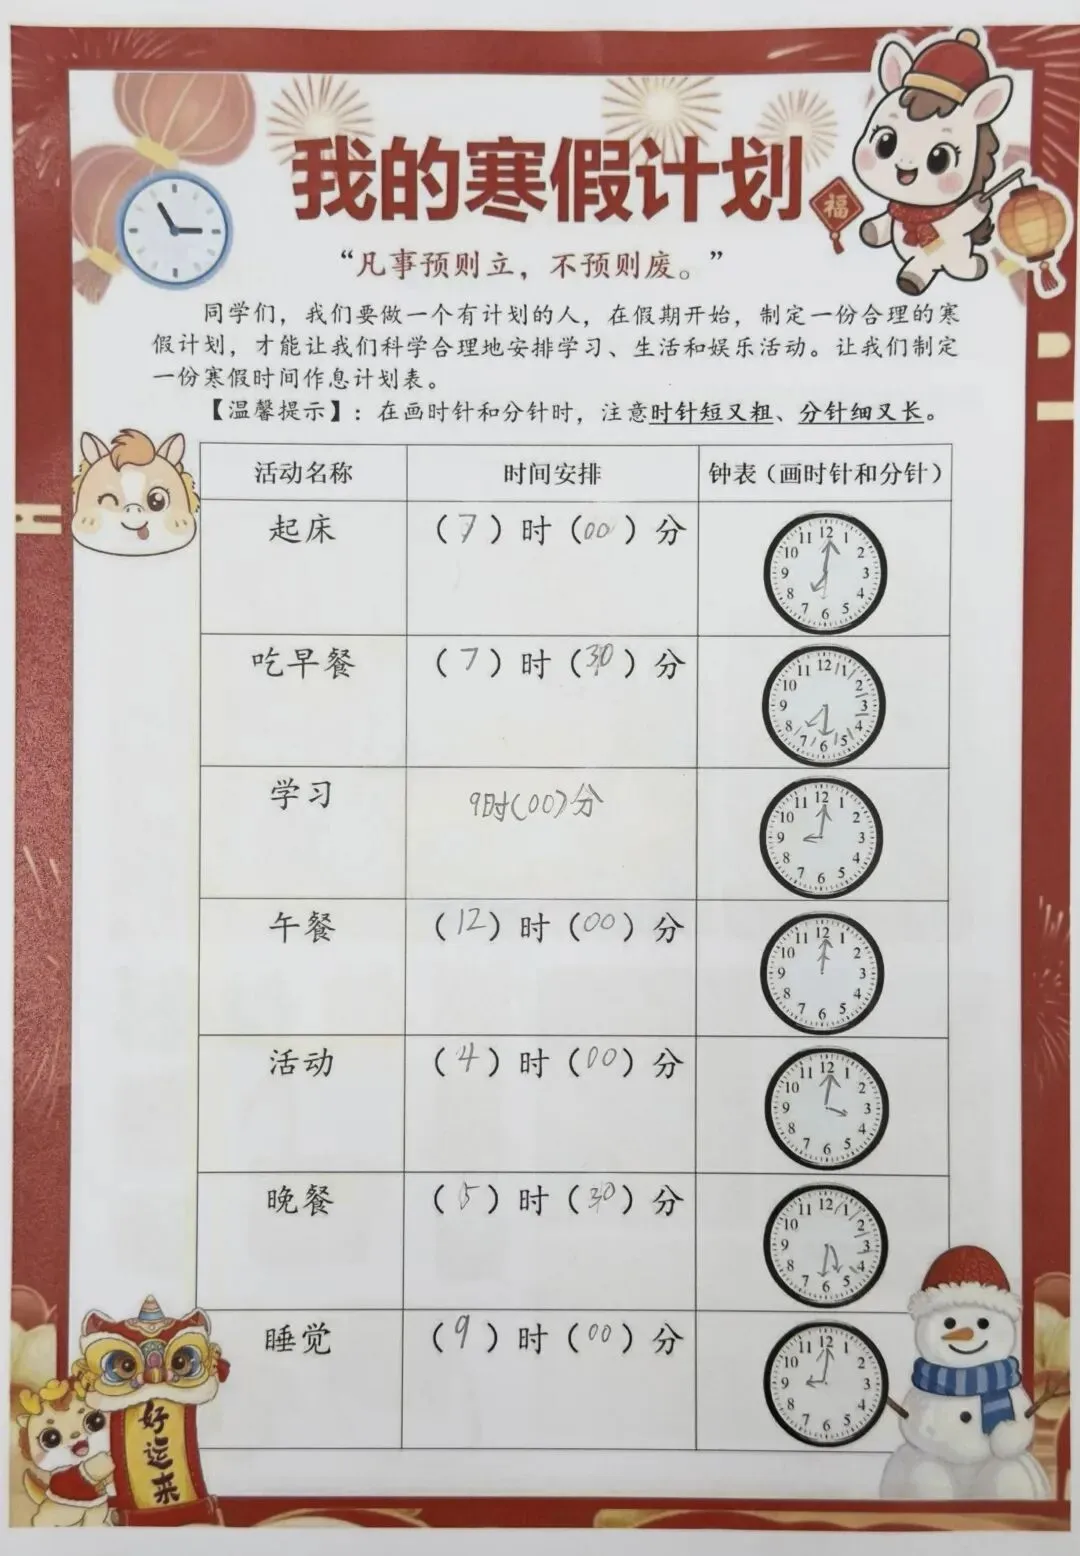 我的寒假计划
福
“凡事预则立，不预则废。”
同学们，我们要做一个有计划的人，在假期开始，制定一份合理的寒
假计划，才能让我们科学合理地安排学习、生活和娱乐活动。让我们制定
一份寒假时间作息计划表。
【温馨提示】：在画时针和分针时，注意时针短又粗、分针细又长。
活动名称 时间安排 钟表（画时针和分针）
起床 （7）时（00）分
12 1 2 3 4 5 6 7 8 9 10 11
吃早餐 （7）时（30）分
12 1 2 3 4 5 6 7 8 9 10 11
学习 9时(00)分
12 1 2 3 4 5 6 7 8 9 10 11
午餐 （12）时（00）分
12 1 2 3 4 5 6 7 8 9 10 11
活动 （4）时（00）分
12 1 2 3 4 5 6 7 8 9 10 11
晚餐 （5）时（30）分
12 1 2 3 4 5 6 7 8 9 10 11
睡觉 （9）时（00）分
12 1 2 3 4 5 6 7 8 9 10 11
好运来